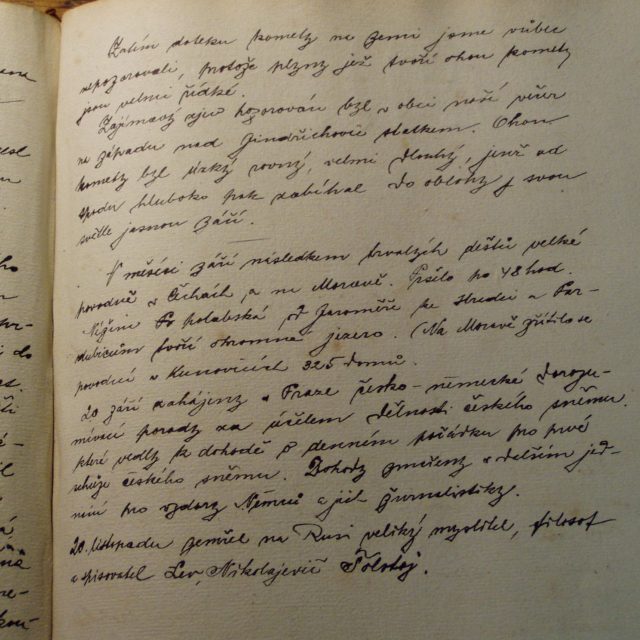 Zatím doteku komety na zemi jsme vůbec
nepozorovali, protože plyny jež tvoří ohon komety
jsou velmi řídké.
Zajímavý zjev pozorován byl v obci naší večer
na západu nad Jindřichovic statkem. Ohon
komety byl úzký rovný, velmi dlouhý, jenž od
spodu hluboko pak zabíhal do oblohy s svou
světle jasnou září.
V měsíci září následkem trvalých dešťů velké
povodně v Čechách a na Moravě. Pršelo po 48 hod.
Nížina Po polabská od Jaroměře ke Hradci a Par-
dubicům tvoří ohromné jezero. Na Moravě zřítilo se
povodní v Kunovicích 325 domů.
20 září zahájeny v Praze česko-německé dorozu-
mívací porady za účelem dělnosti českého sněmu
které vedly ke dohodě o denním pořádku pro prvé
schůze českého sněmu. Dohody zmařeny v dalším jed-
nání pro vzdory Němců a jich žurnalistiky.
20. listopadu zemřel na Rusi veliký myslitel, filosof
a spisovatel Lev Nikolajevič Tolstoj.